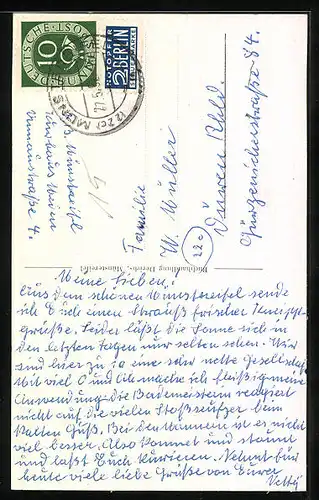 DEUTSCHE·BUNDESPOST
10
NOTOPFER
2 BERLIN
STEUERMARKE
(22c) MÜNSTE
Münstereifel
Kurhaus
Unnaustraße 4.
Familie
W. Müller
(22c) Düren Rhld.
Gürzenicherstraße 84.
Buchhandlung Münstereifel
Meine Lieben!
Aus dem schönen Münstereifel sende
ich Euch einen Strauß frischer Kneipp-
grüße. Leider läßt die Sonne sich in
den letzten Tagen nur selten sehen. Wir
sind hier zu 10 eine sehr nette Gesellschaf
Mit viel O und Ach mache ich fleißig meine
Anwendung. Die Bademeisterin reagiert
nicht auf die vielen Stoßseufzer beim
kalten Guß. Bei den Männern ist es nicht
viel besser. Also kommt und staunt
und laßt Euch kurieren. Nehmt für
heute viele liebe Grüße von Eurer
Tetty